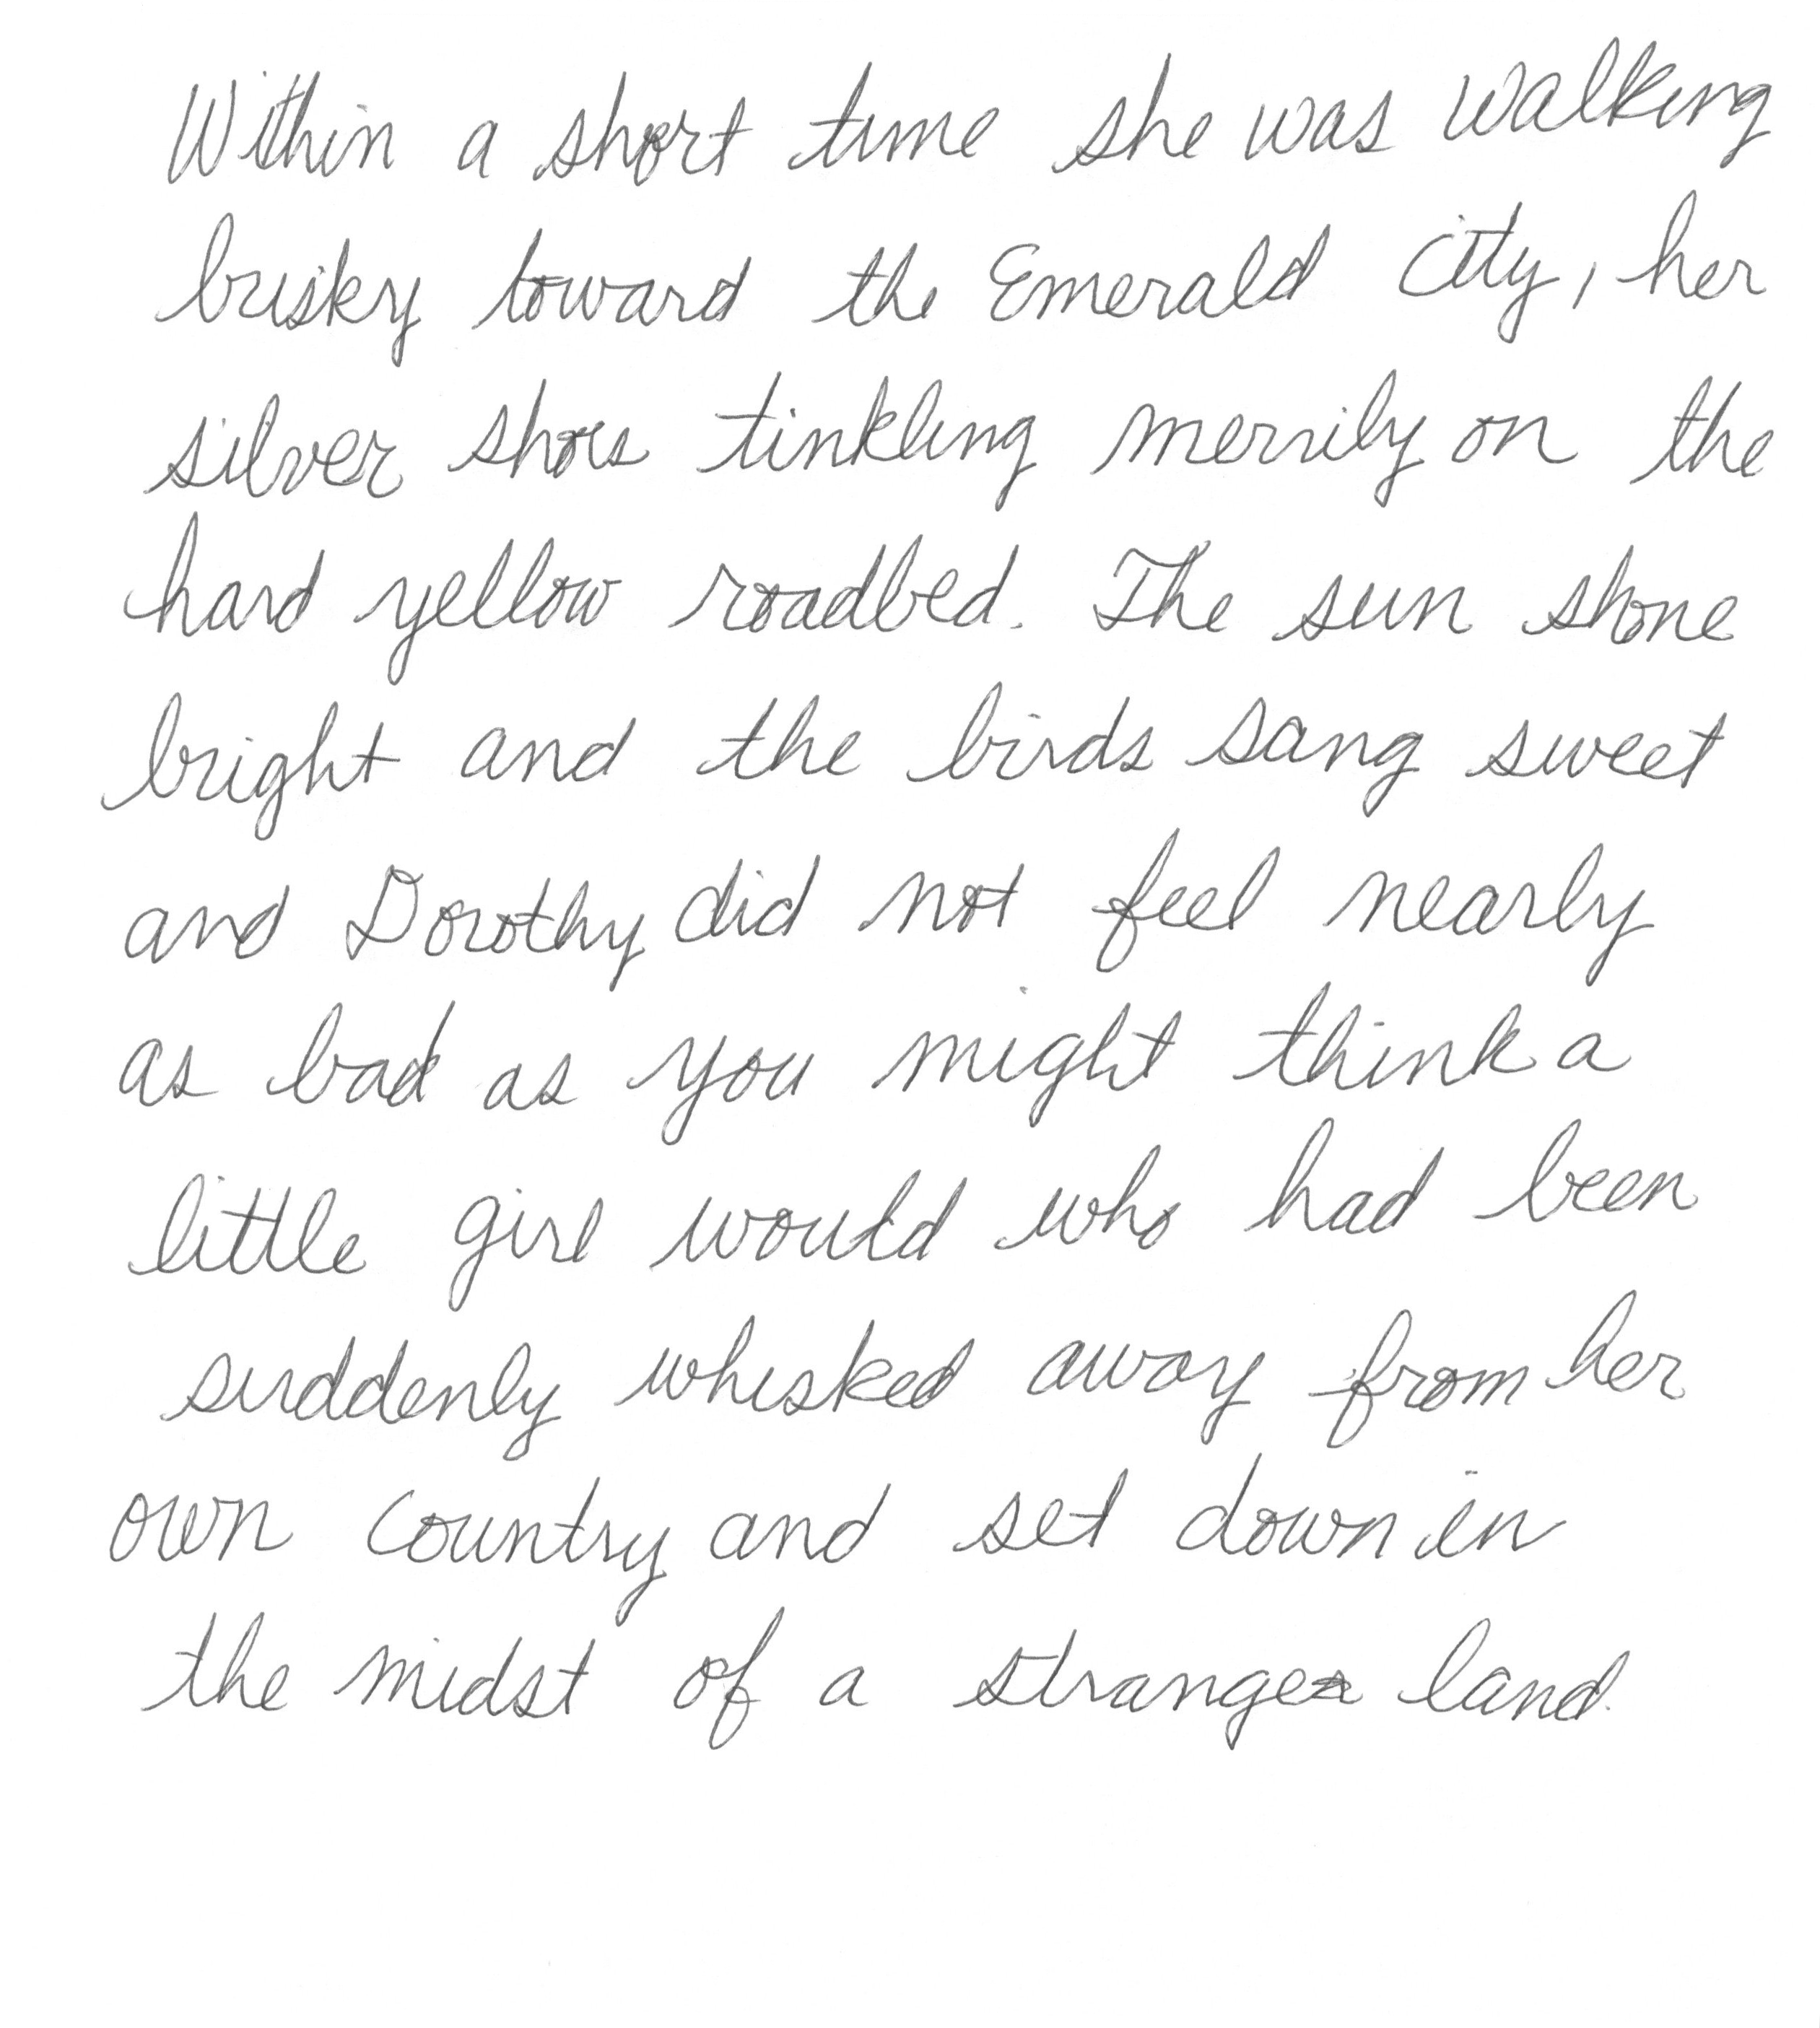 Within a short time she was walking
brisky toward the Emerald City, her
silver shoes tinkling merrily on the
hard yellow roadbed. The sun shone
bright and the birds sang sweet
and Dorothy did not feel nearly
as bad as you might think a
little girl would who had been
suddenly whisked away from her
own country and set down in
the midst of a strange land.